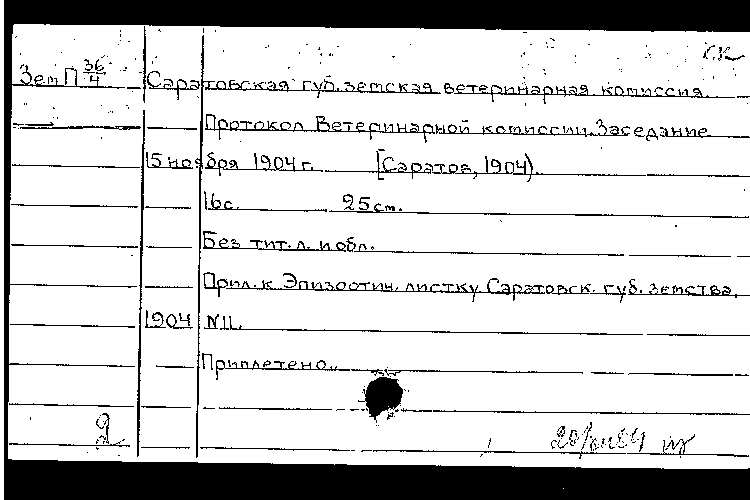 Зем П 36/4 Саратовская губ. земская ветеринарная комиссия.
Протокол Ветеринарной комиссии. Заседание
15 ноября 1904 г. [Саратов, 1904).
16с. 25 см.
Без тит. л. и обл.
Прил. к Эпизоотич. листку Саратовск. губ. земства,
1904 N11.
Приплетено.
2